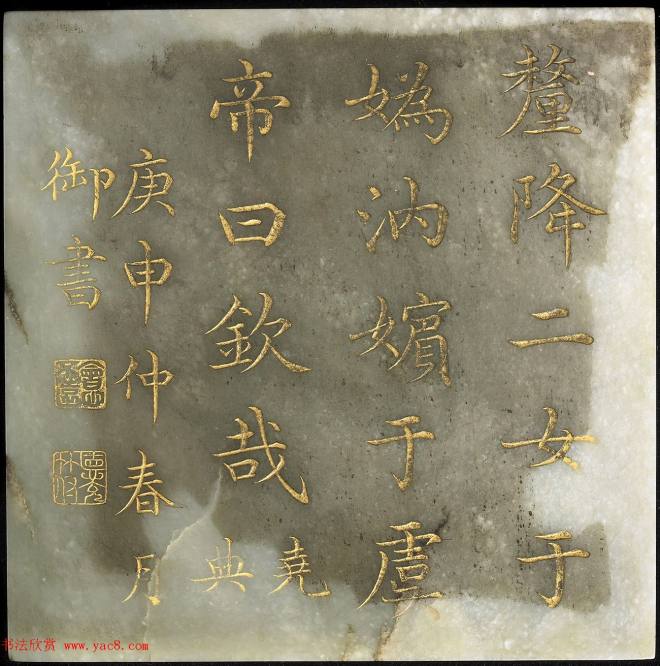 釐降二女于
媯汭嬪于虞
帝曰欽哉
堯典
庚申仲春月
御書
书法欣赏 www.yac8.com